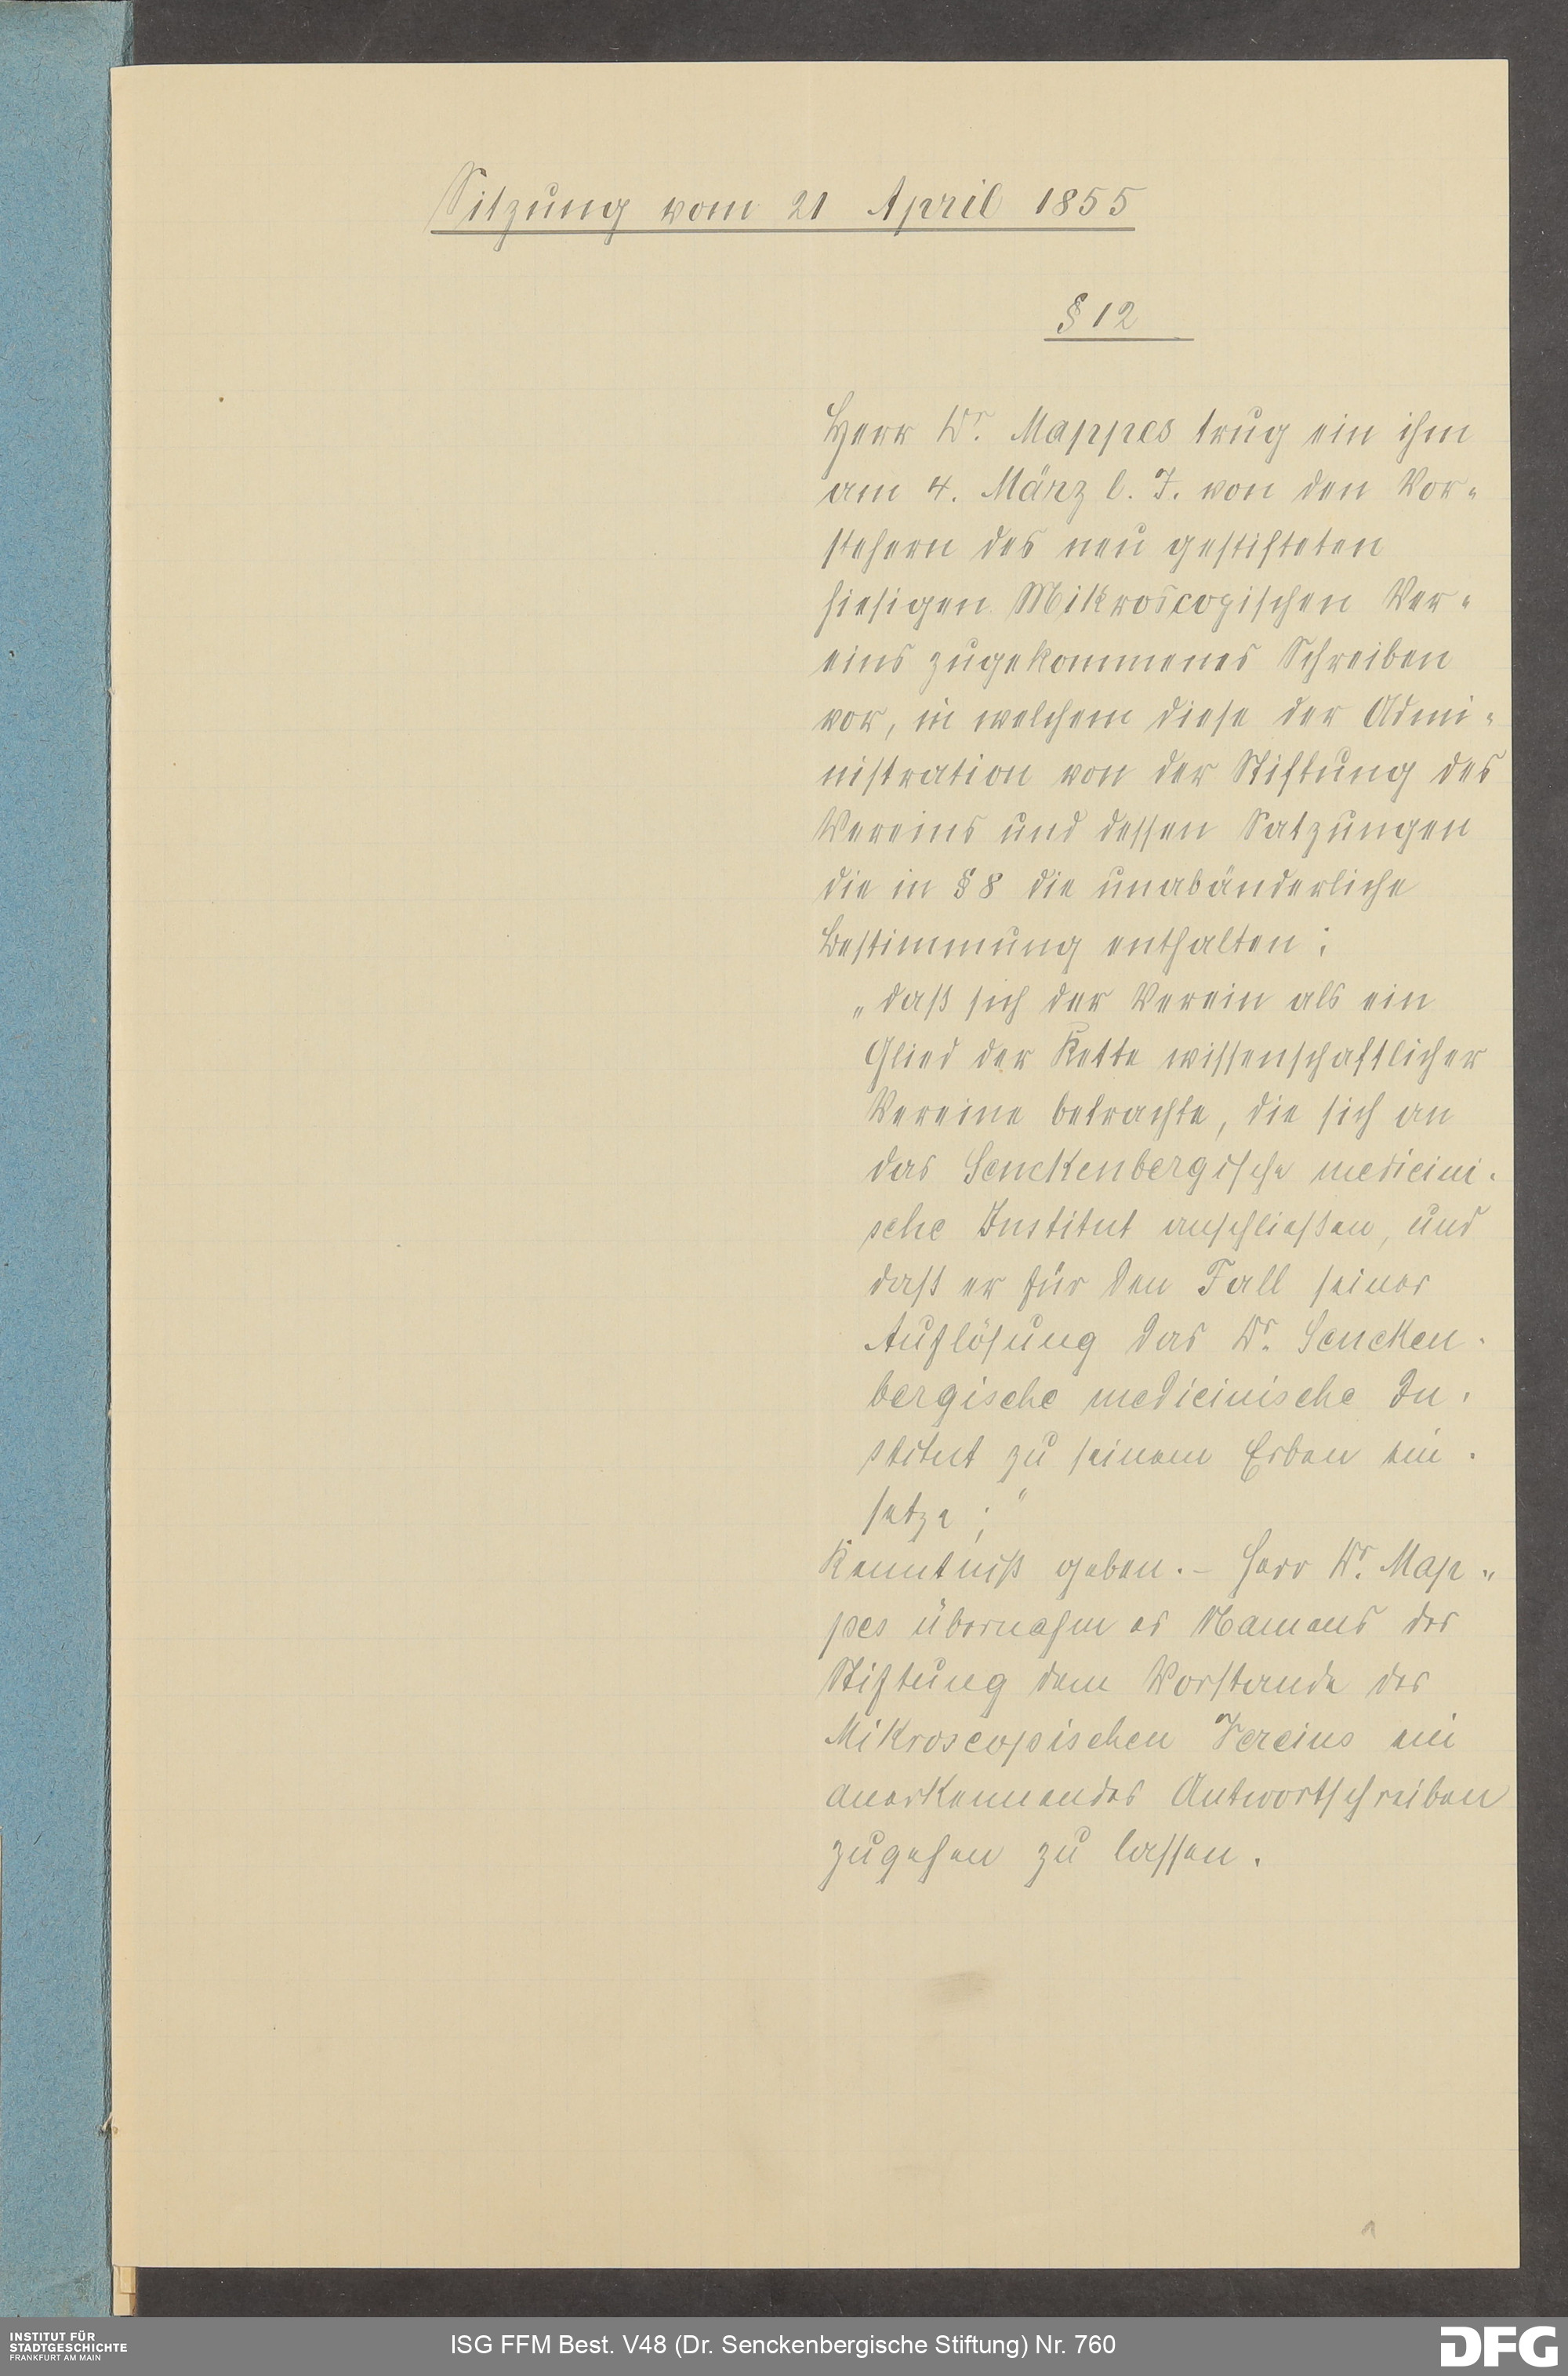 Sitzung vom 21 April 1855
§ 12
Herr Dr. Mappes trug ein ihm
am 4. März l. J. von den Vor-
stehern des neu gestifteten
hiesigen Mikroscopischen Ver-
eins zugekommenes Schreiben
vor, in welchem diese der Admi-
nistration von der Stiftung des
Vereins und dessen Satzungen
die in § 8 die unabänderliche
Bestimmung enthalten:
„daß sich der Verein als ein
Glied der Kette wissenschaftlicher
Vereine betrachte, die sich an
das Senckenbergische medicini-
sche Institut anschließen, und
daß er für den Fall seiner
Auflösung das Dr. Sencken-
bergische medicinische In-
stitut zu seinem Erben ein-
setze;"
Kenntniß geben. – Herr Dr. Map-
pes übernahm es Namens der
Stiftung dem Vorstande des
Mikroscopischen Vereins ein
anerkennendes Antwortschreiben
zugehen zu lassen.
1
INSTITUT FÜR
STADTGESCHICHTE
FRANKFURT AM MAIN
ISG FFM Best. V48 (Dr. Senckenbergische Stiftung) Nr. 760
DFG